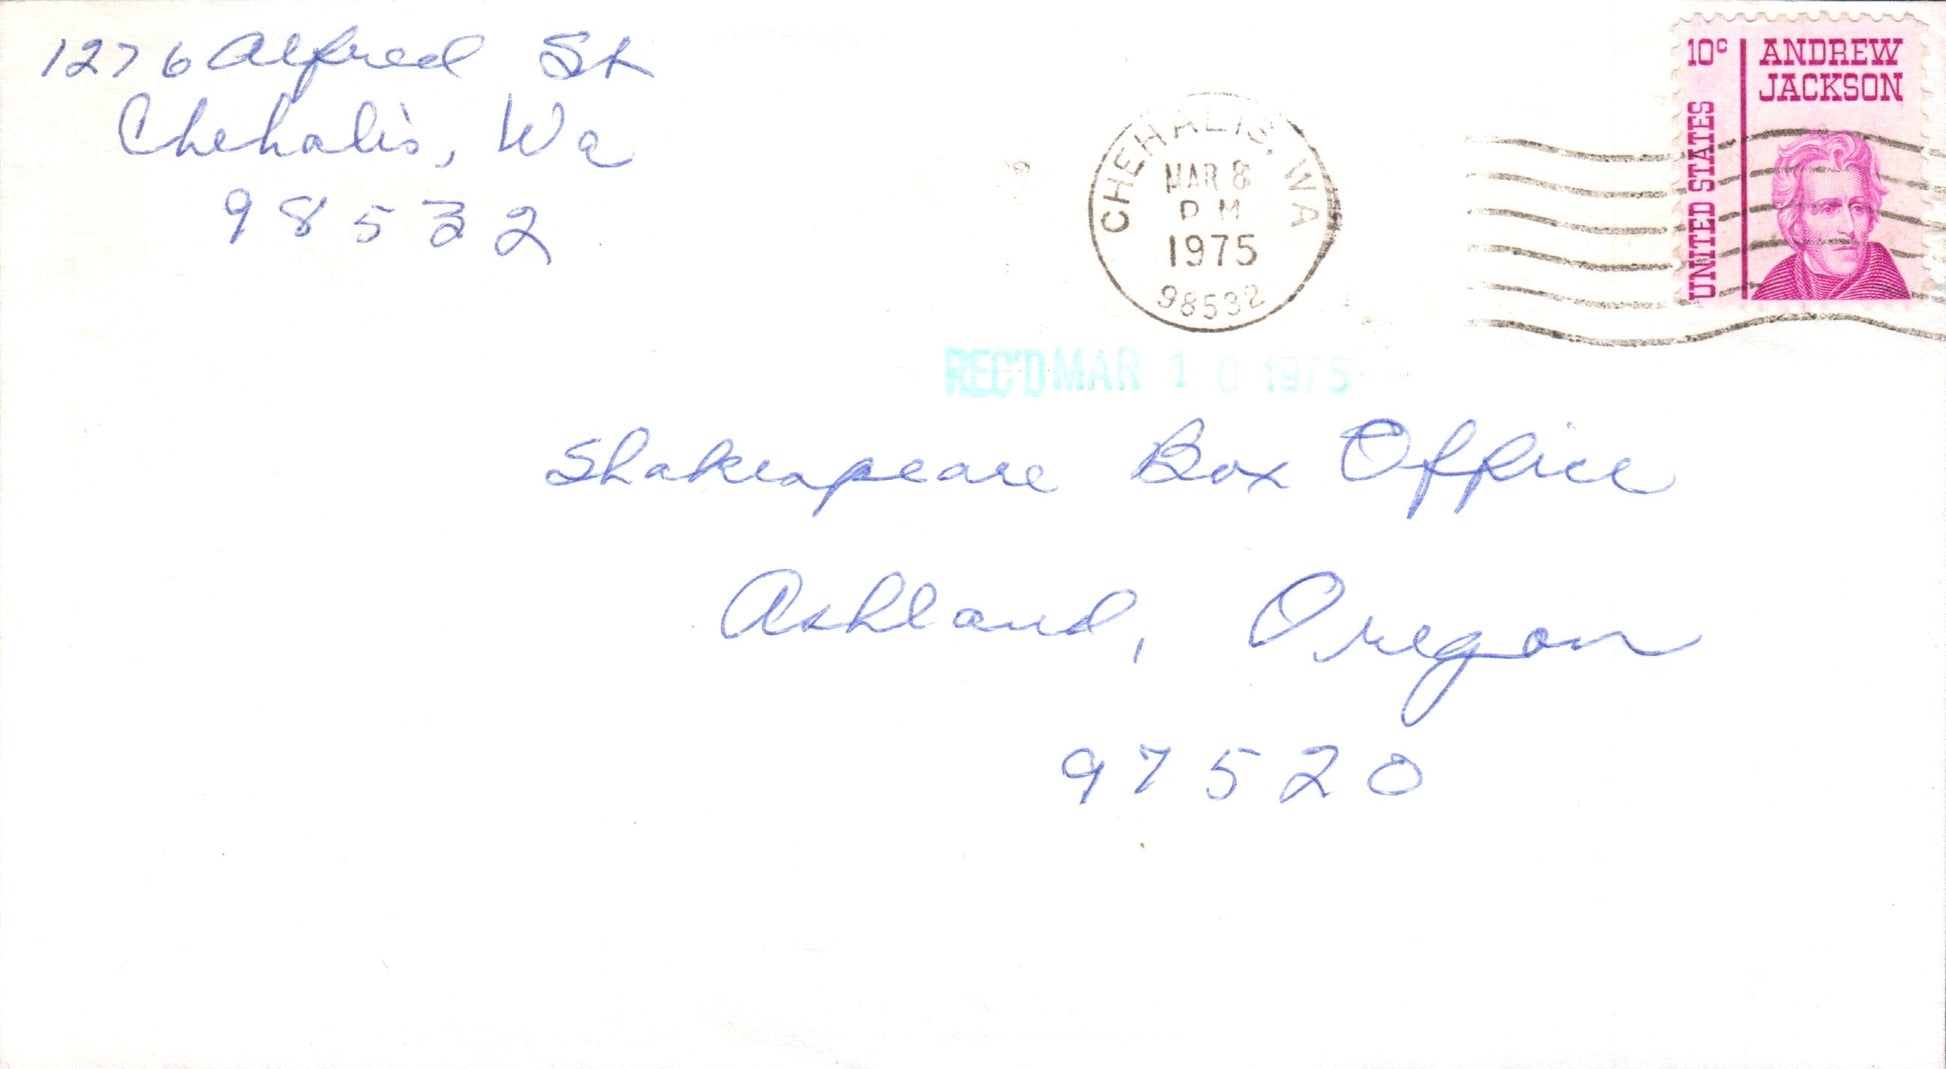 1276 Alfred St
Chehalis, Wa
98532
CHEHALIS, WA
MAR 8
PM
1975
98532
10c
ANDREW
JACKSON
UNITED STATES
REC'D MAR 10 1975
Shakespeare Box Office
Ashland, Oregon
97520